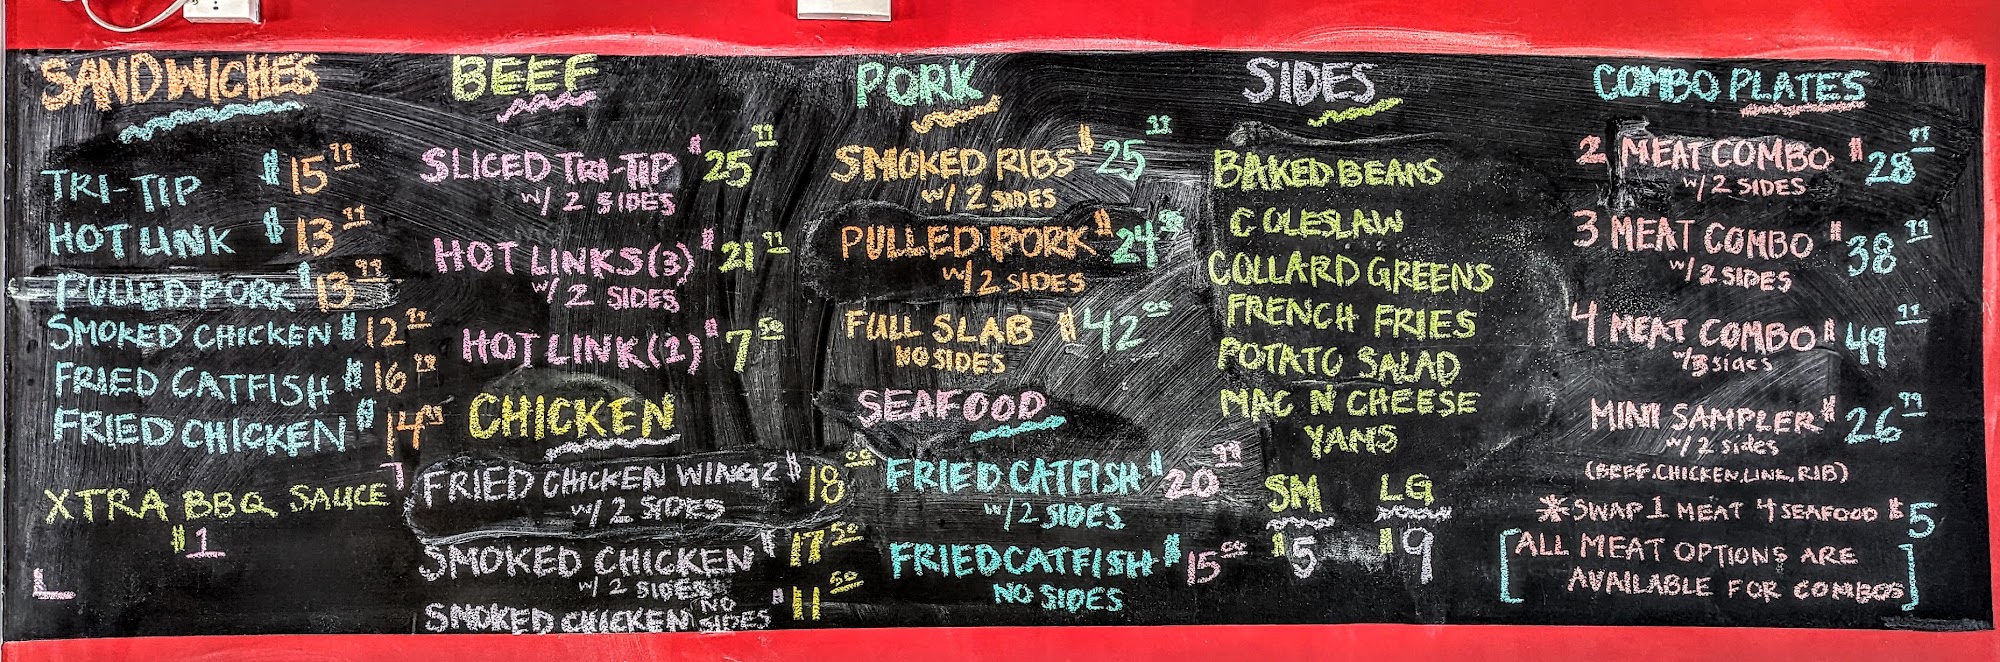 SANDWICHES
TRI-TIP $15.99
HOT LINK $13.99
PULLED PORK $13.99
SMOKED CHICKEN $12.99
FRIED CATFISH $16
FRIED CHICKEN $14.99
XTRA BBQ SAUCE
$1
BEEF
SLICED TRI-TIP $25.99
w/ 2 SIDES
HOT LINKS (3) $21.99
w/ 2 SIDES
HOT LINK (1) $7.50
CHICKEN
FRIED CHICKEN WINGZ $18.00
w/ 2 SIDES
SMOKED CHICKEN $17.50
w/ 2 SIDES
SMOKED CHICKEN NO SIDES $11.50
PORK
SMOKED RIBS $25.99
w/ 2 SIDES
PULLED PORK $24
w/ 2 SIDES
FULL SLAB $42.00
NO SIDES
SEAFOOD
FRIED CATFISH $20.99
w/ 2 SIDES
FRIED CATFISH $15.00
NO SIDES
SIDES
BAKED BEANS
COLESLAW
COLLARD GREENS
FRENCH FRIES
POTATO SALAD
MAC N CHEESE
YAMS
SM LG
$5 $9
COMBO PLATES
2 MEAT COMBO $28.99
w/ 2 SIDES
3 MEAT COMBO $38.99
w/ 2 SIDES
4 MEAT COMBO $49.99
w/ 3 sides
MINI SAMPLER $26.99
w/ 2 sides
(BEEF, CHICKEN, LINK, RIB)
*SWAP 1 MEAT 4 SEAFOOD $5
[ALL MEAT OPTIONS ARE
AVAILABLE FOR COMBOS]